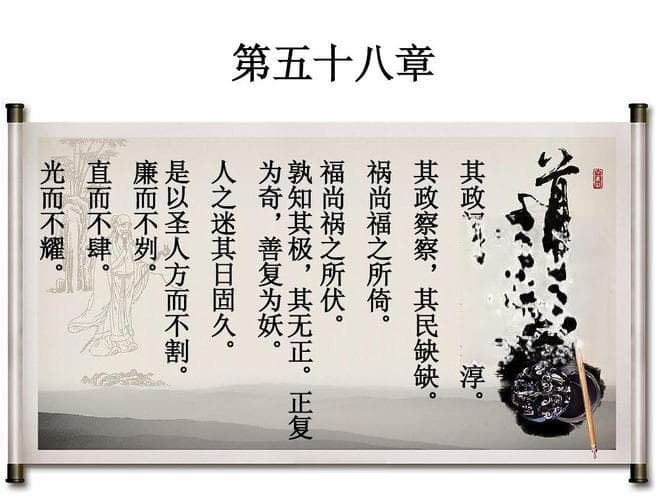 第五十八章
道
其政 淳。
其政察察，其民缺缺。
祸尚福之所倚。
福尚祸之所伏。
孰知其极，其无正。正复
为奇，善复为妖。
人之迷其日固久。
是以圣人方而不割。
廉而不刿。
直而不肆。
光而不耀。